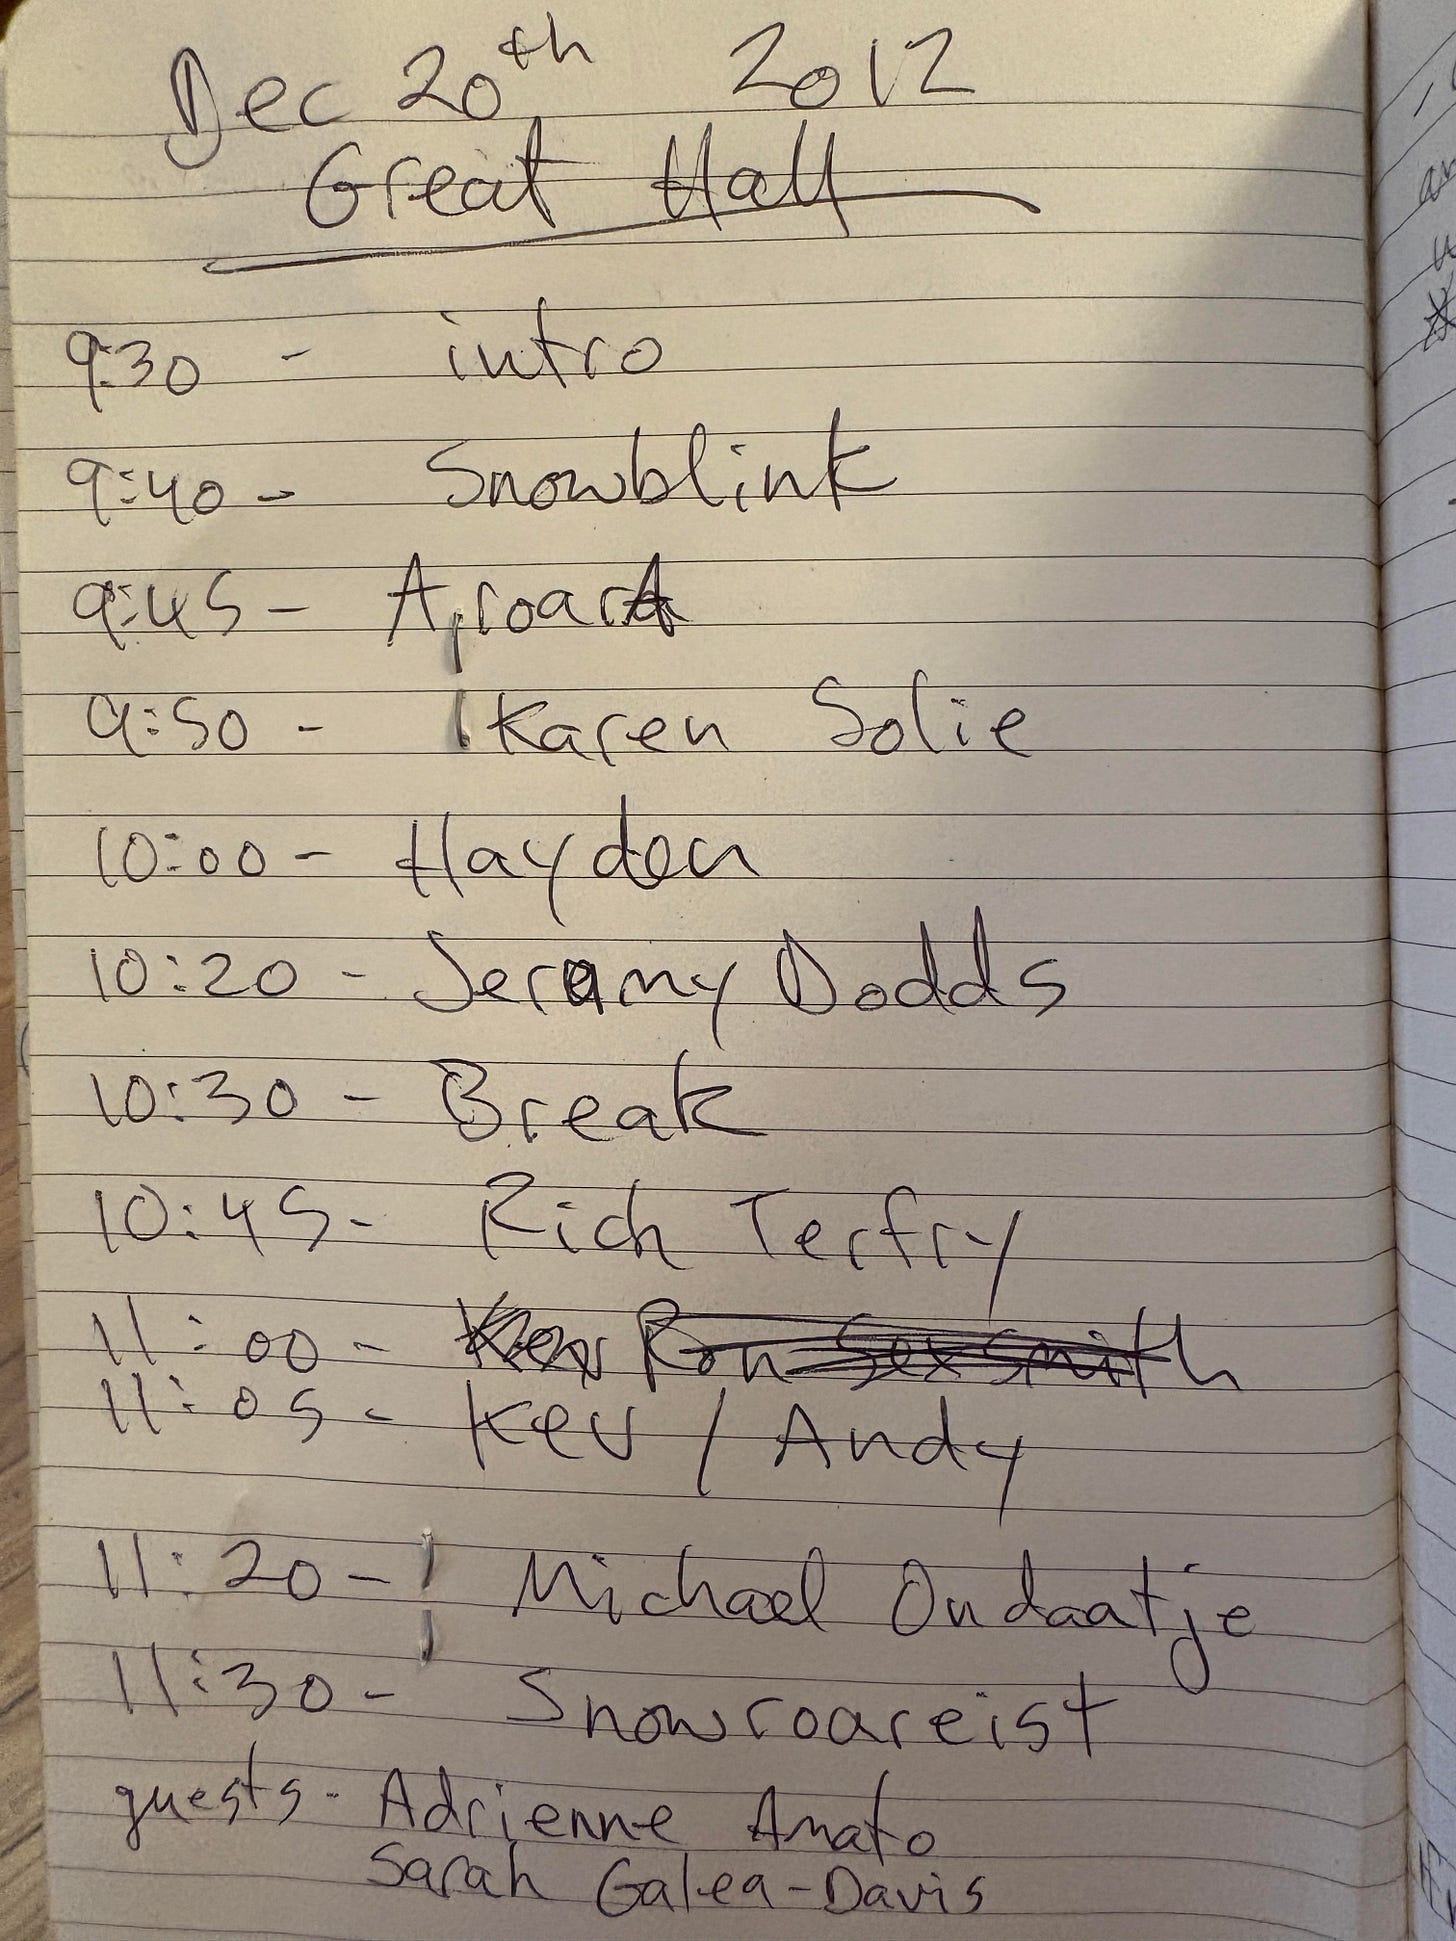 Dec 20th 2012
Great Hall
9:30 - intro
9:40 - Snowblink
9:45 - AroarA
9:50 - Karen Solie
10:00 - Hayden
10:20 - Jeramy Dodds
10:30 - Break
10:45 - Rich Terfry
11:00 - Kev Ron Sexsmith
11:05 - Kev / Andy
11:20 - Michael Ondaatje
11:30 - Snowroareist
guests - Adrienne Amato
Sarah Galea-Davis